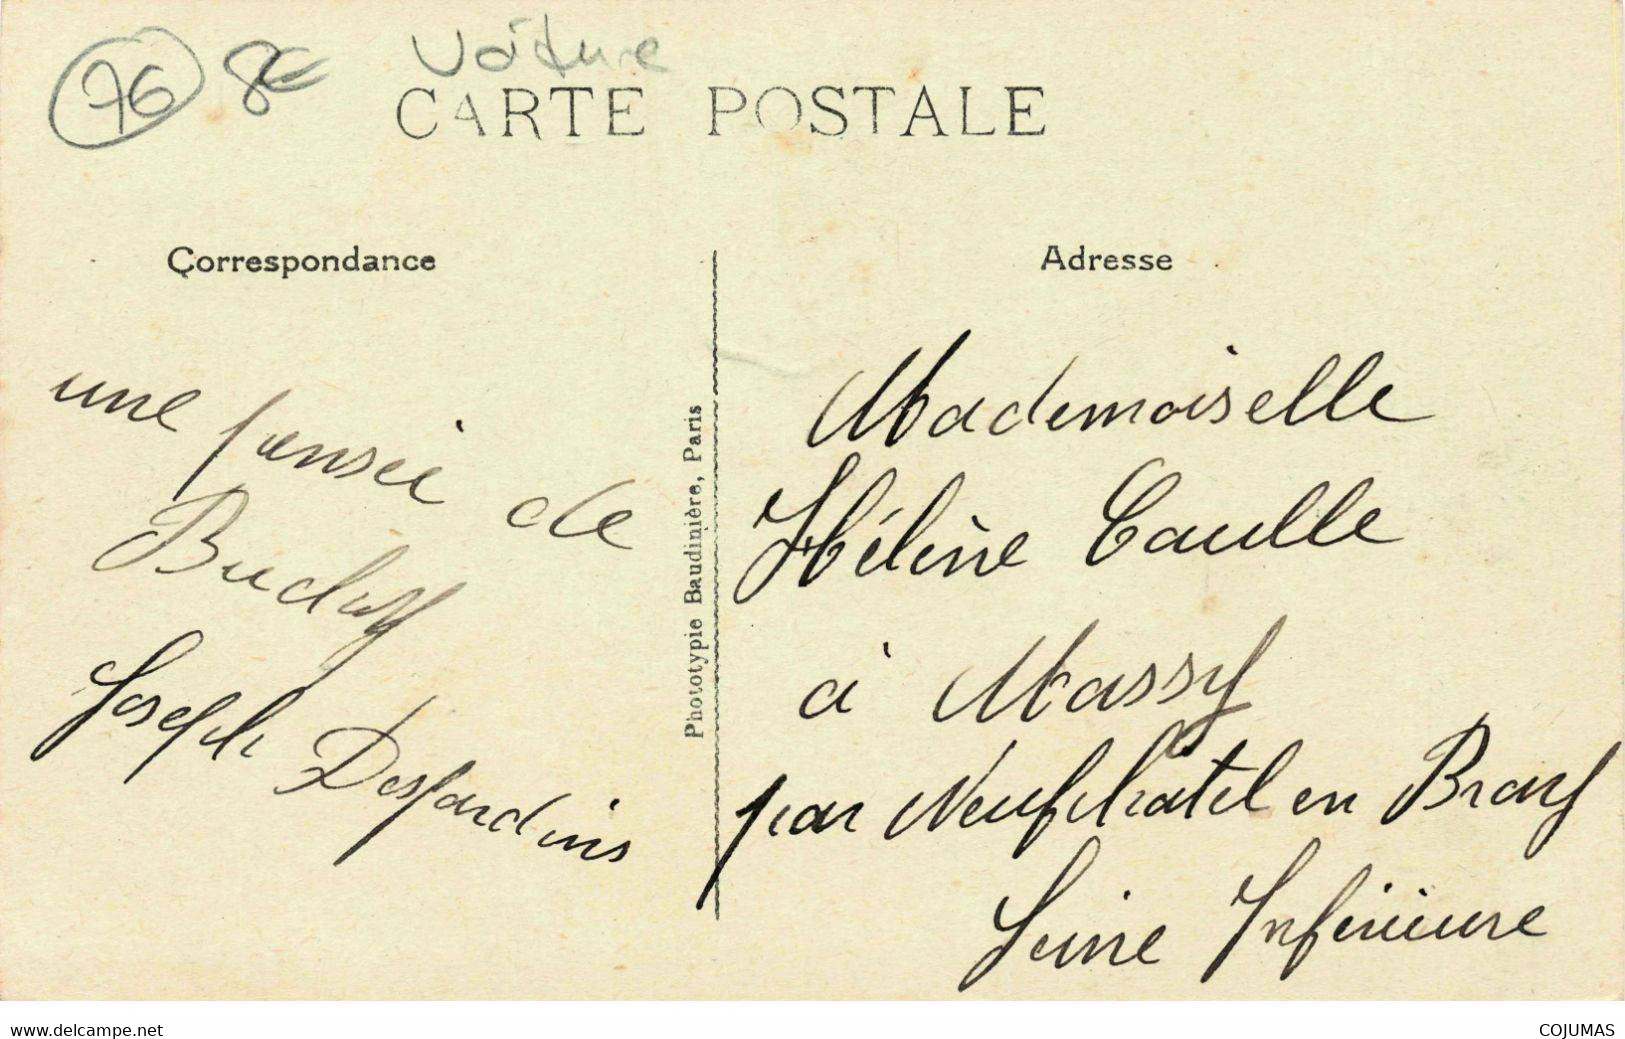 76 8€ Voiture
CARTE POSTALE
Correspondance
Adresse
une pensée de
Buchy
Joseph Desjardins
Phototypie Baudinière, Paris
Mademoiselle
Hélène Caulle
à Massy
par Neufchatel en Bray
Seine Inférieure
www.delcampe.net
COJUMAS